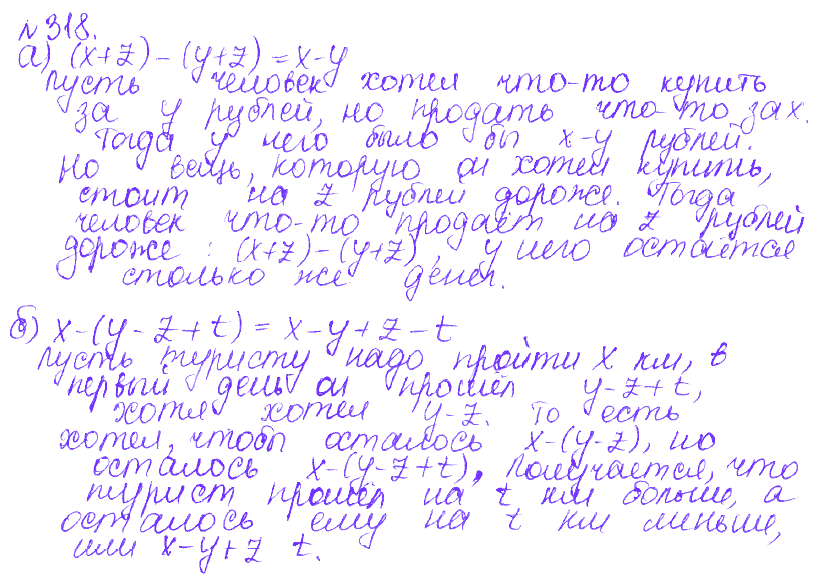 №318.
а) (x+z)-(y+z)=x-y
Пусть человек хотел что-то купить
за y рублей, но продать что-то за x.
Тогда у него было бы x-y рублей.
Но вещь, которую он хотел купить,
стоит на z рублей дороже. Тогда
человек что-то продаёт на z рублей
дороже: (x+z)-(y+z), у него остаётся
столько же денег.
б) x-(y-z+t)=x-y+z-t
Пусть туристу надо пройти x км, в
первый день он прошёл y-z+t,
хотя хотел y-z. То есть
хотел, чтобы осталось x-(y-z), но
осталось x-(y-z+t). Получается, что
турист прошёл на t км больше, а
осталось ему на t км меньше,
или x-y+z t.